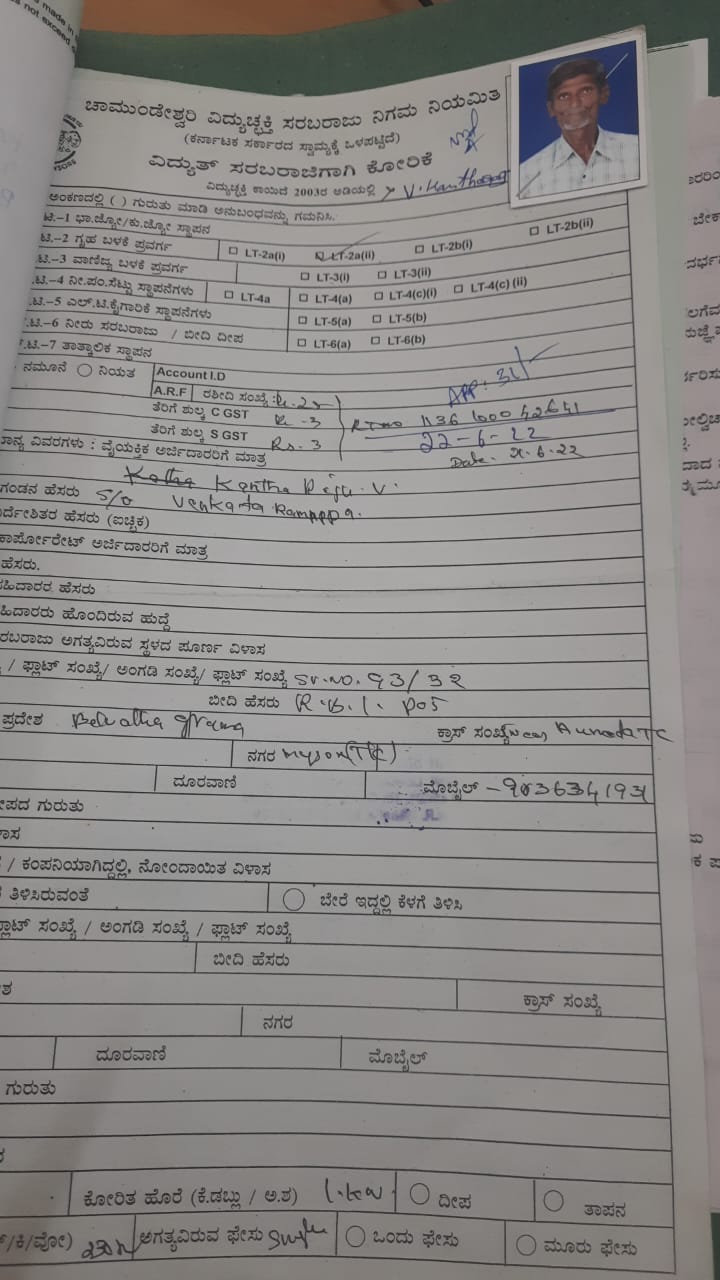 made in
s not exceed
ಚಾಮುಂಡೇಶ್ವರಿ ವಿದ್ಯುಚ್ಛಕ್ತಿ ಸರಬರಾಜು ನಿಗಮ ನಿಯಮಿತ
(ಕರ್ನಾಟಕ ಸರ್ಕಾರದ ಸ್ವಾಮ್ಯಕ್ಕೆ ಒಳಪಟ್ಟಿದೆ)
ವಿದ್ಯುತ್ ಸರಬರಾಜಿಗಾಗಿ ಕೋರಿಕೆ
ವಿದ್ಯುಚ್ಛಕ್ತಿ ಕಾಯಿದೆ 2003ರ ಅಡಿಯಲ್ಲಿ
ಅಂಕಣದಲ್ಲಿ ( ) ಗುರುತು ಮಾಡಿ ಅನುಬಂಧವನ್ನು ಗಮನಿಸಿ.
ಟಿ.-1 ಭಾ.ಜ್ಯೋ/ಕು.ಜ್ಯೋ ಸ್ಥಾಪನ
ಟಿ.-2 ಗೃಹ ಬಳಕೆ ಪ್ರವರ್ಗ LT-2a(i) LT-2a(ii) LT-2b(i) LT-2b(ii)
ಟಿ.-3 ವಾಣಿಜ್ಯ ಬಳಕೆ ಪ್ರವರ್ಗ LT-3(i) LT-3(ii)
.ಟಿ.-4 ನೀ.ಪಂ.ಸೆಟ್ಟು ಸ್ಥಾಪನೆಗಳು LT-4a LT-4(a) LT-4(c)(i) LT-4(c) (ii)
.ಟಿ.-5 ಎಲ್.ಟಿ.ಕೈಗಾರಿಕೆ ಸ್ಥಾಪನೆಗಳು LT-5(a) LT-5(b)
.ಟಿ.-6 ನೀರು ಸರಬರಾಜು / ಬೀದಿ ದೀಪ LT-6(a) LT-6(b)
.ಟಿ.-7 ತಾತ್ಕಾಲಿಕ ಸ್ಥಾಪನ
ನಮೂನೆ ನಿಯತ Account I.D
A.R.F ರಶೀದಿ ಸಂಖ್ಯೆ : APP: 31
ತೆರಿಗೆ ಶುಲ್ಕ C GST 3
ತೆರಿಗೆ ಶುಲ್ಕ S GST Rs. 3 22-6-22
ಾನ್ಯ ವಿವರಗಳು : ವೈಯಕ್ತಿಕ ಅರ್ಜಿದಾರರಿಗೆ ಮಾತ್ರ Date. 21.6.22
Kantha Raju. V.
ಗಂಡನ ಹೆಸರು S/o Venkata Ramappa.
ರ್ದೇಶಿತರ ಹೆಸರು (ಐಚ್ಛಿಕ)
ಕಾರ್ಪೋರೇಟ್ ಅರ್ಜಿದಾರರಿಗೆ ಮಾತ್ರ
ಹೆಸರು.
ಸಹಿದಾರರ ಹೆಸರು
ಹಿದಾರರು ಹೊಂದಿರುವ ಹುದ್ದೆ
ರಬರಾಜು ಅಗತ್ಯವಿರುವ ಸ್ಥಳದ ಪೂರ್ಣ ವಿಳಾಸ
/ ಫ್ಲಾಟ್ ಸಂಖ್ಯೆ/ ಅಂಗಡಿ ಸಂಖ್ಯೆ/ ಫ್ಲಾಟ್ ಸಂಖ್ಯೆ Sr.NO. 93/32
ಬೀದಿ ಹೆಸರು R.B.I. Post
ಪ್ರದೇಶ Belvatha grama ಕ್ರಾಸ್ ಸಂಖ್ಯೆ
ನಗರ mysore(TK)
ದೂರವಾಣಿ ಮೊಬೈಲ್ -
ೀಪದ ಗುರುತು
ಾಸ
/ ಕಂಪನಿಯಾಗಿದ್ದಲ್ಲಿ, ನೋಂದಾಯಿತ ವಿಳಾಸ
ತಿಳಿಸಿರುವಂತೆ ಬೇರೆ ಇದ್ದಲ್ಲಿ ಕೆಳಗೆ ತಿಳಿಸಿ
ಫ್ಲಾಟ್ ಸಂಖ್ಯೆ / ಅಂಗಡಿ ಸಂಖ್ಯೆ / ಫ್ಲಾಟ್ ಸಂಖ್ಯೆ
ಬೀದಿ ಹೆಸರು
ಶ ಕ್ರಾಸ್ ಸಂಖ್ಯೆ
ನಗರ
ದೂರವಾಣಿ ಮೊಬೈಲ್
ಗುರುತು
ಕೋರಿತ ಹೊರೆ (ಕೆ.ಡಬ್ಲು / ಅ.ಶ) 1.kw. ದೀಪ ತಾಪನ
/ಕಿ/ವೋ) ಅಗತ್ಯವಿರುವ ಫೇಸು ಒಂದು ಫೇಸು ಮೂರು ಫೇಸು